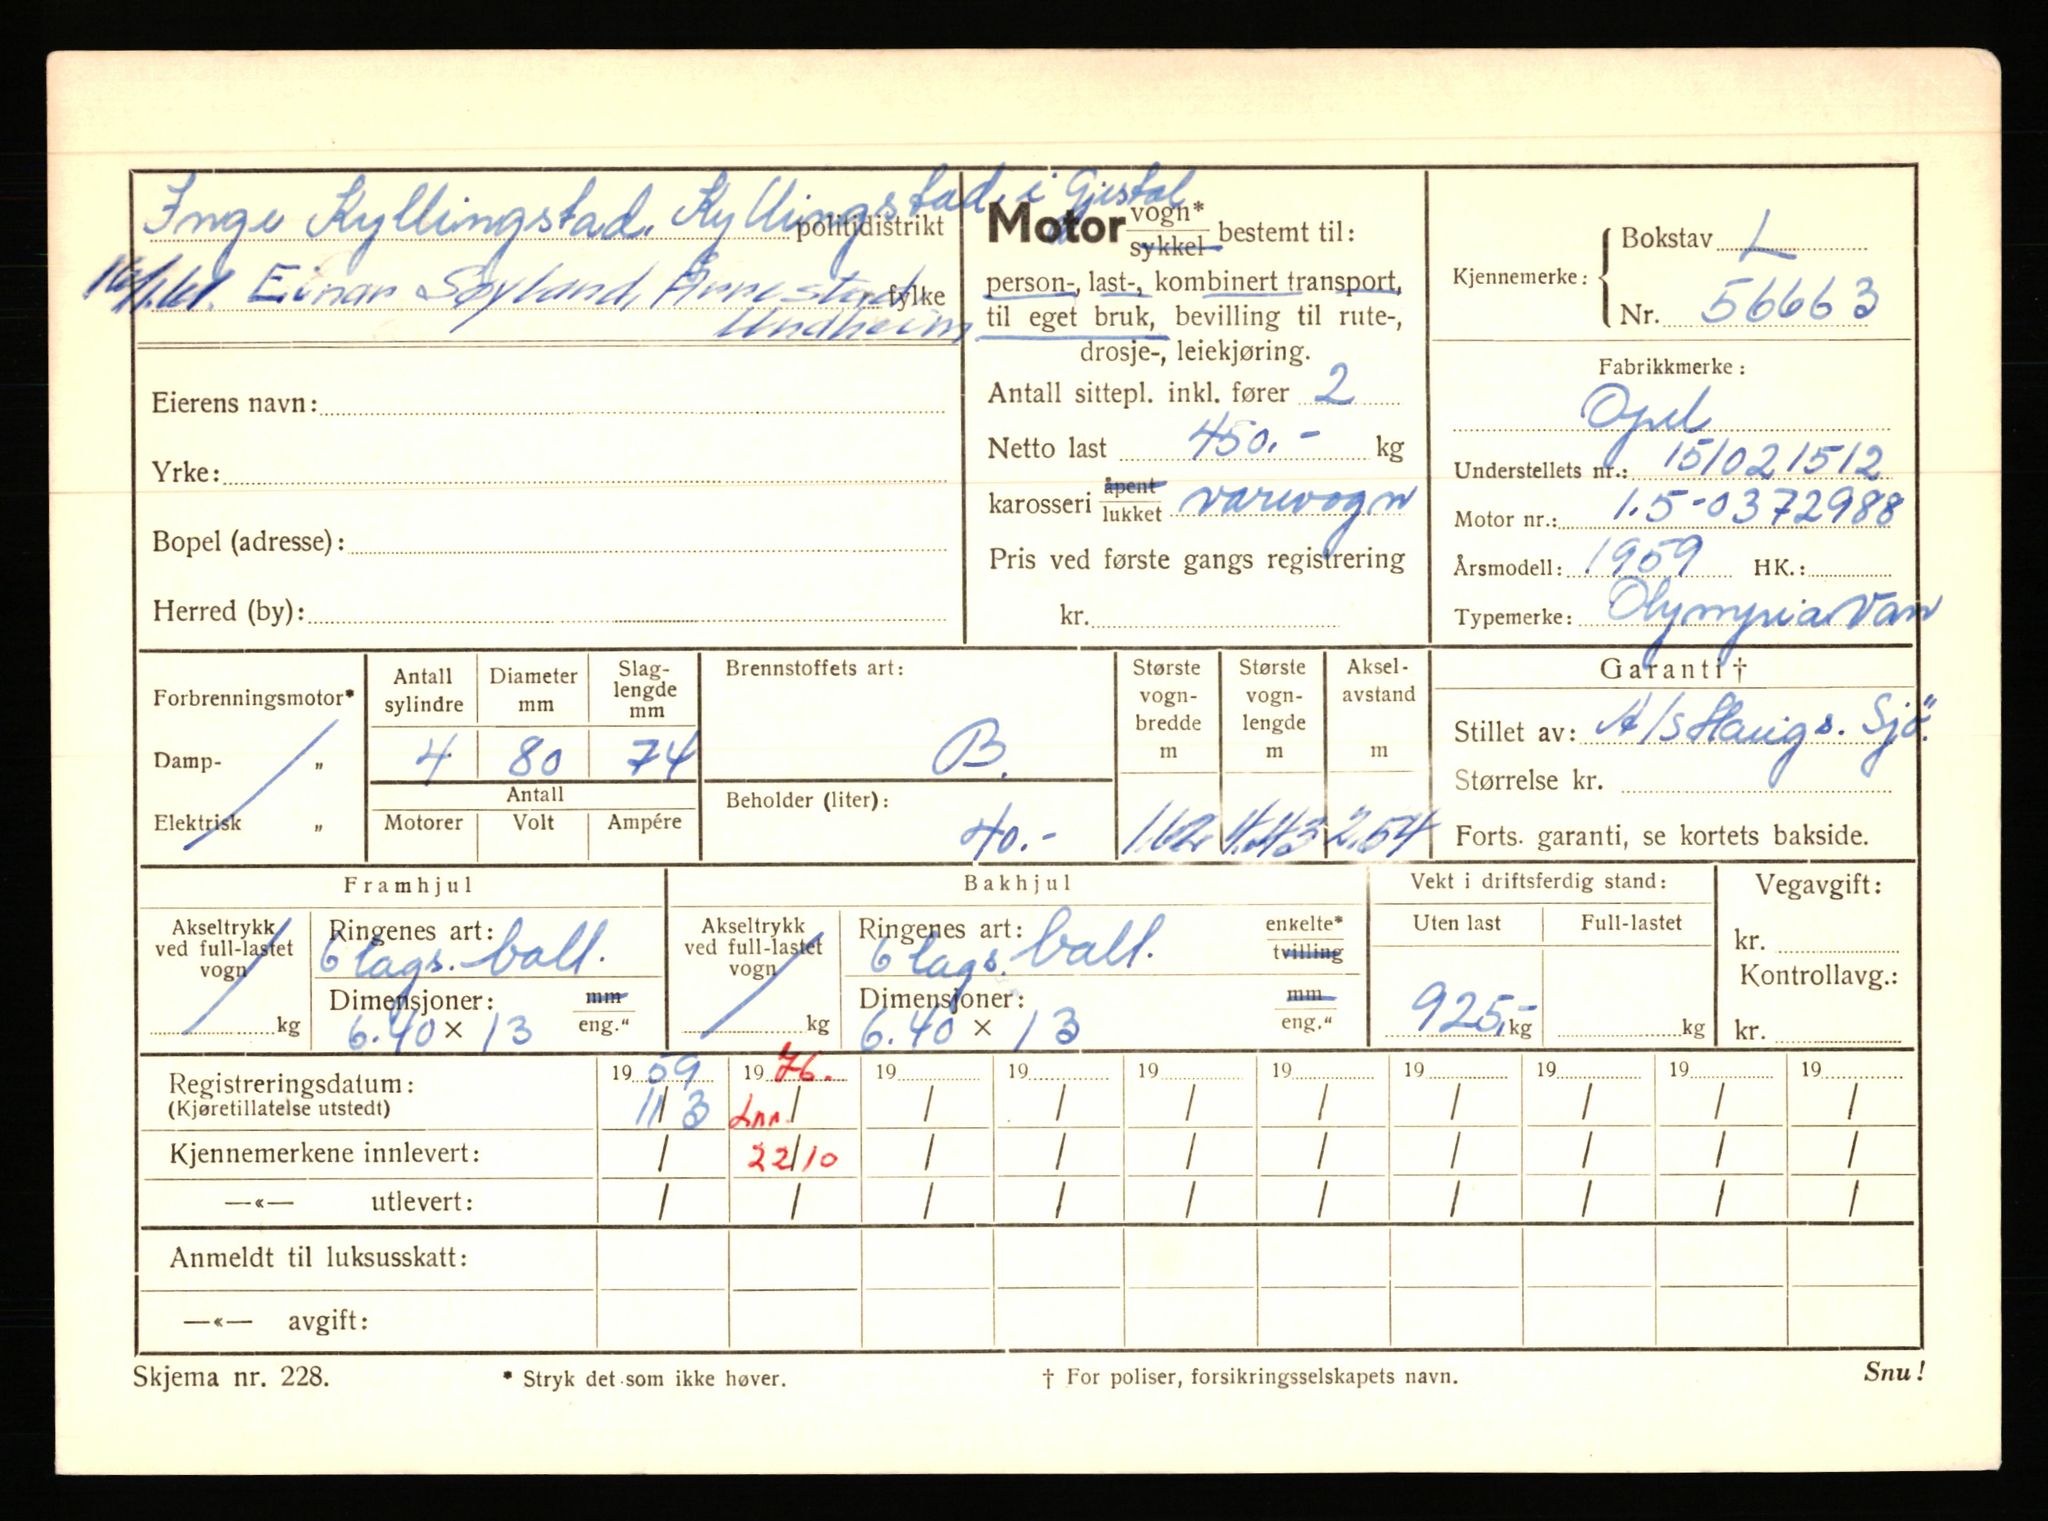 Inge Kyllingstad, Kyllingstad i Gjestal
politidistrikt
Einar Søyland, Årrestad
fylke
Undheim
Eierens navn:
Yrke:
Bopel (adresse):
Herred (by):
Motor vogn*
sykkel bestemt til:
person-, last-, kombinert transport,
til eget bruk, bevilling til rute-,
drosje-, leiekjøring.
Antall sittepl. inkl. fører 2
Netto last 450.- kg
karosseri åpent
lukket varevogn
Pris ved første gangs registrering
kr.
Kjennemerke: Bokstav L
Nr. 56663
Fabrikkmerke:
Opel
Understellets nr.: 151021512
Motor nr.: 1.5-0372988
Årsmodell: 1959 HK.:
Typemerke: Olympia Van
Forbrenningsmotor*
Damp- „
Elektrisk „
Antall sylindre
Diameter mm
Slaglengde mm
4 80 74
Antall
Motorer Volt Ampére
Brennstoffets art:
B.
Beholder (liter):
40.-
Største vognbredde m
Største vognlengde m
Akselavstand m
1.62 4.43 2.54
Garanti †
Stillet av: A/S Haugs. Sjö.
Størrelse kr.
Forts. garanti, se kortets bakside.
Framhjul
Akseltrykk
ved full-lastet
vogn
kg
Ringenes art:
6 lags. ball.
Dimensjoner: mm
6.40 × 13 eng."
Bakhjul
Akseltrykk
ved full-lastet
vogn
kg
Ringenes art: enkelte*
6 lags. ball. tvilling
Dimensjoner: mm
6.40 × 13 eng."
Vekt i driftsferdig stand:
Uten last Full-lastet
925,- kg kg
Vegavgift:
kr.
Kontrollavg.:
kr.
Registreringsdatum: 19 59 19 76. 19 19 19 19 19 19 19 19
(Kjøretillatelse utstedt) 11/3 Inn. / / / / / / / / /
Kjennemerkene innlevert: / 22/10 / / / / / / / /
—«— utlevert: / / / / / / / / / /
Anmeldt til luksusskatt:
—«— avgift:
Skjema nr. 228. * Stryk det som ikke høver. † For poliser, forsikringsselskapets navn. Snu!